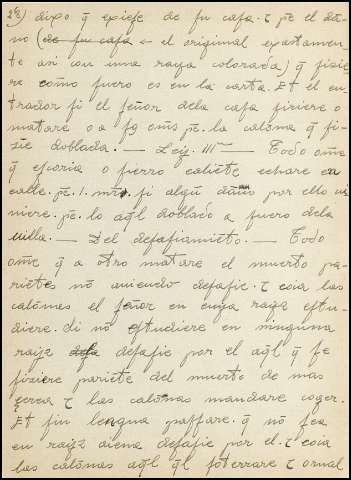 2º) dixo q̃ exiese de su casa. τ pẽ el dã-
no (de su casa en el original exactamen-
te así con una raya colorada) q̃ fizie
re como fuero es en la carta. Et el en
trador si el señor dela casa firiere o
matare o a pẽ la calõma q̃ fi-
zie doblada. — Ley. III — Todo oṁe
q̃ escoria o fierro caliẽte echare en
calle. pẽ. 1. mr̃. si algũ daño por ello vi
niere. pẽ. lo aq̃l doblado a fuero dela
villa. — Del desafiamiẽto. — Todo
oṁe q̃ a otro matare el muerto pa-
riẽtes nõ aviendo desafie. τ coia las
calõmas el señor en cuya rayz estu-
diere. Si nõ estudiere en ninguna
rayz desafie por el aq̃l q̃ se
fiziere pariẽte del muerto de mas
cerca τ las calõmas mandare coger.
Et sin lengua passare. q̃ nõ sea
en rayz aiena desafie por el. τ coia
las calõmas aq̃l q̃l soterrare τ